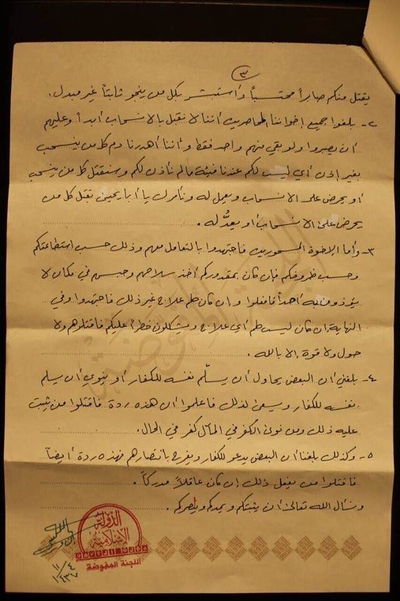 ٣
يقتل منكم صابراً محتسباً وأستبشر بكل من ينجو ثابتاً غير مبدل.
٢- بلغوا جميع إخواننا المحاصرين أننا لا نقبل بالانسحاب أبداً وعليهم
أن يصبروا ولو بقي منهم واحد فقط وأننا أهدرنا دم كل من ينسحب
بغير إذن أي ليس لكم عندنا فيئة مالم نأذن لكم وسنقتل كل من ينسحب
أو يحرض على الانسحاب ويعمل له ونأمرك يا أبا بقتل كل من
يحرض على الانسحاب أو يعدّ له.
٣- وأما الإخوة فاجتهدوا بالتعامل معهم وذلك حسب استطاعتكم
وحسب ظروفكم فإن كان بمقدوركم أخذ سلاحهم وحبسهم في مكان لا
يؤذون فيه أحداً فافعلوا وإن كان لهم علاج غير ذلك فاجتهدوا وفي
النهاية إن كان ليس لهم أي علاج ويشكلون خطراً عليكم فاقتلوهم ولا
حول ولا قوة إلا بالله.
٤- بلغني أن البعض يحاول أن يسلّم نفسه للكفار أو ينوي أن يسلم
نفسه للكفار ويسعى لذلك فاعلموا أن هذه ردة فاقتلوا من يثبت
عليه ذلك ومن نوى الكفر في المآل كفر في الحال.
٥- وكذلك بلغنا أن البعض يدعو للكفار ويفرح بانتصارهم فهذه ردة أيضاً
فاقتلوا من يفعل ذلك إن كان عاقلاً مدركاً.
ونسأل الله تعالى أن يثبتكم ويمدكم وينصركم.
الدولة
الإسلامية
اللجنة المفوضة